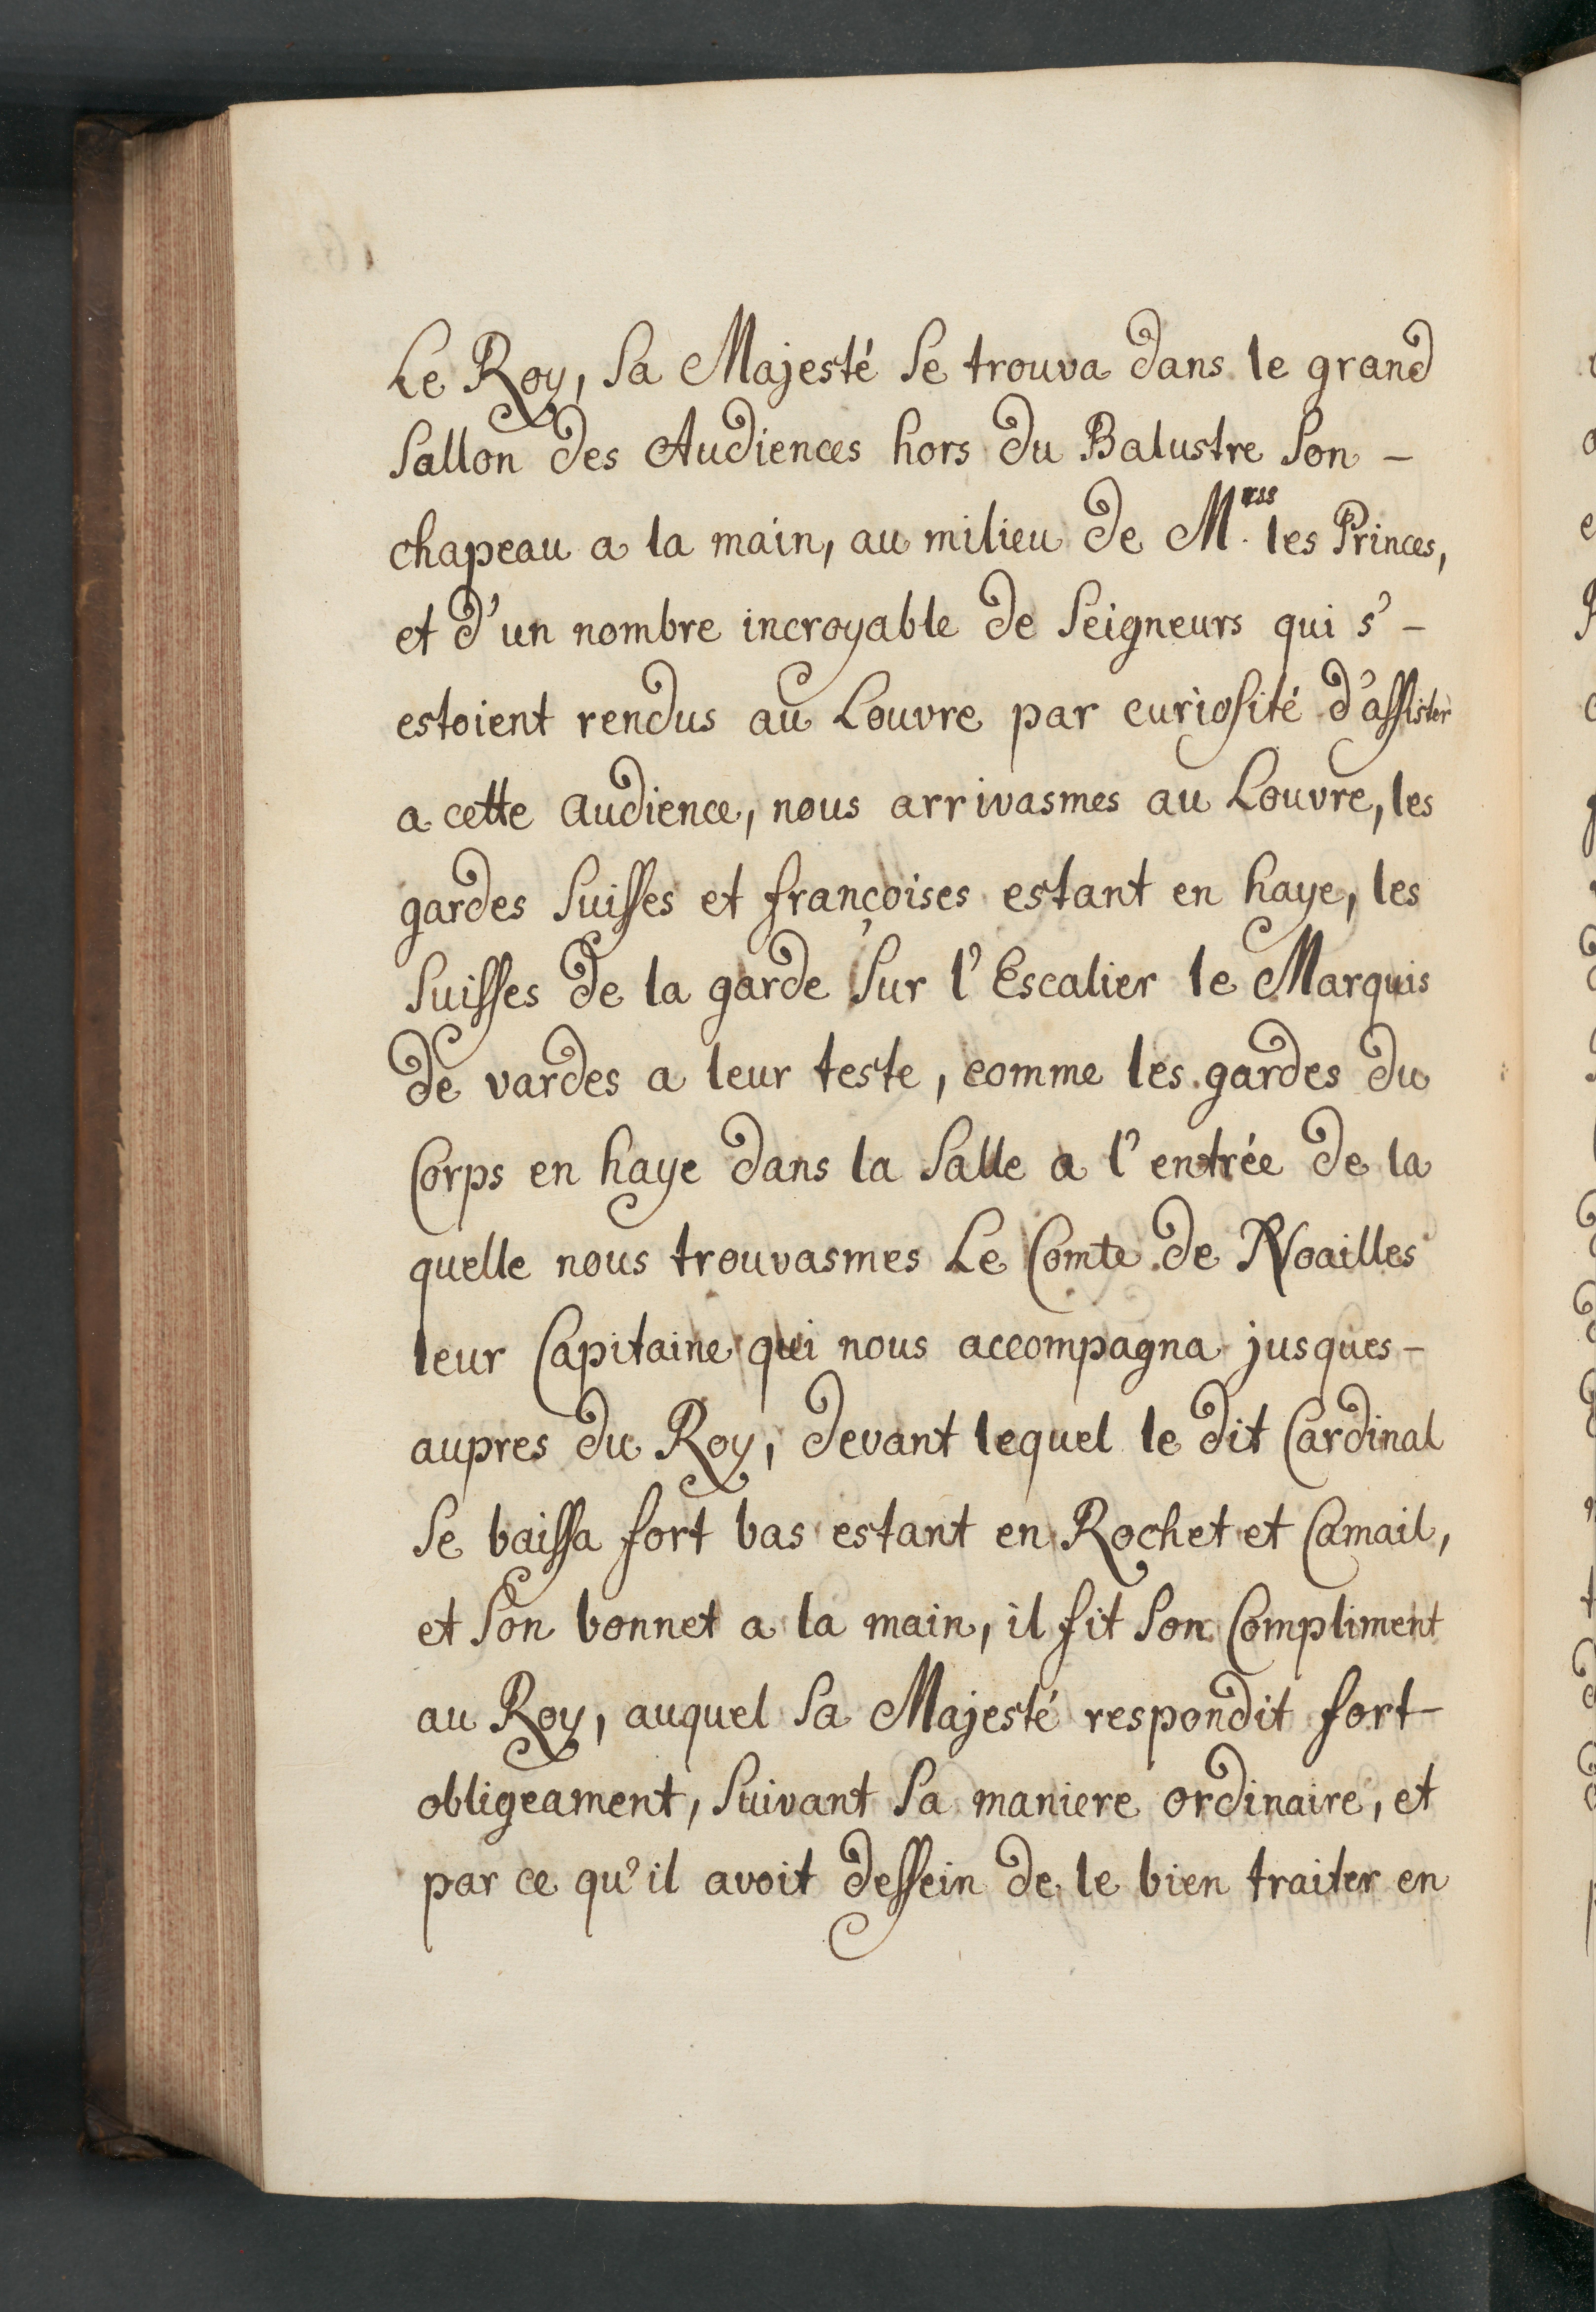 Le Roy, Sa Majesté Se trouva dans le grand
Sallon des Audiences hors du Balustre Son -
chapeau a la main, au milieu de M.rss les Princes,
et d'un nombre incroyable de Seigneurs qui s' -
estoient rendus au Louvre par curiosité d'assister
a cette audience, nous arrivasmes au Louvre, les
gardes Suisses et françoises estant en haye, les
Suisses de la garde Sur l'Escalier le Marquis
de vardes a leur teste, comme les gardes du
Corps en haye dans la Salle a l'entrée de la
quelle nous trouvasmes Le Comte de Noailles
leur Capitaine qui nous accompagna jusques -
aupres du Roy, devant lequel le dit Cardinal
Se baissa fort bas estant en Rochet et Camail,
et Son bonnet a la main, il fit Son Compliment
au Roy, auquel Sa Majesté respondit fort -
obligeament, Suivant Sa maniere ordinaire, et
par ce qu'il avoit dessein de le bien traiter en